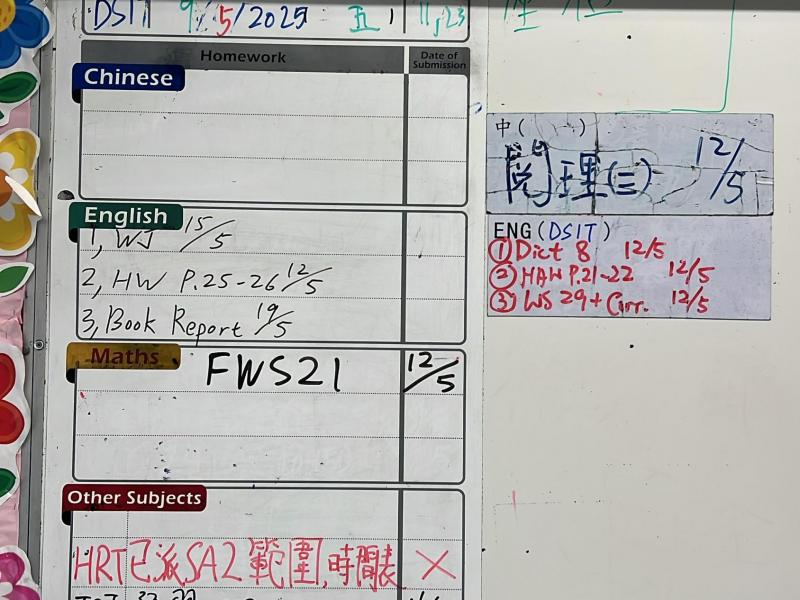 DSIT 9/5/2025 五 11,23
Homework
Date of Submission
Chinese
English
1, WJ 15/5
2, HW P.25-26 12/5
3, Book Report 19/5
Maths
FWS21 12/5
Other Subjects
HRT已派SA2範圍,時間表 X
中( )
閱理(三) 12/5
ENG(DSIT)
① Dict 8 12/5
② HAW P.21-22 12/5
③ WS 29+ Corr. 12/5